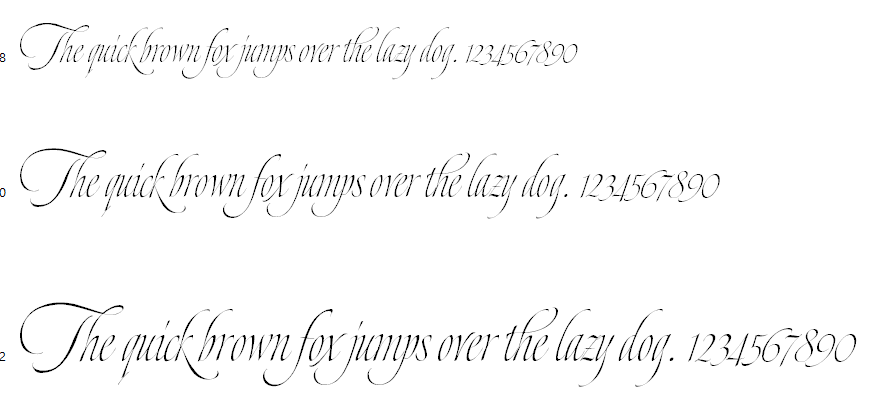 8 The quick brown fox jumps over the lazy dog. 1234567890
0 The quick brown fox jumps over the lazy dog. 1234567890
2 The quick brown fox jumps over the lazy dog. 1234567890